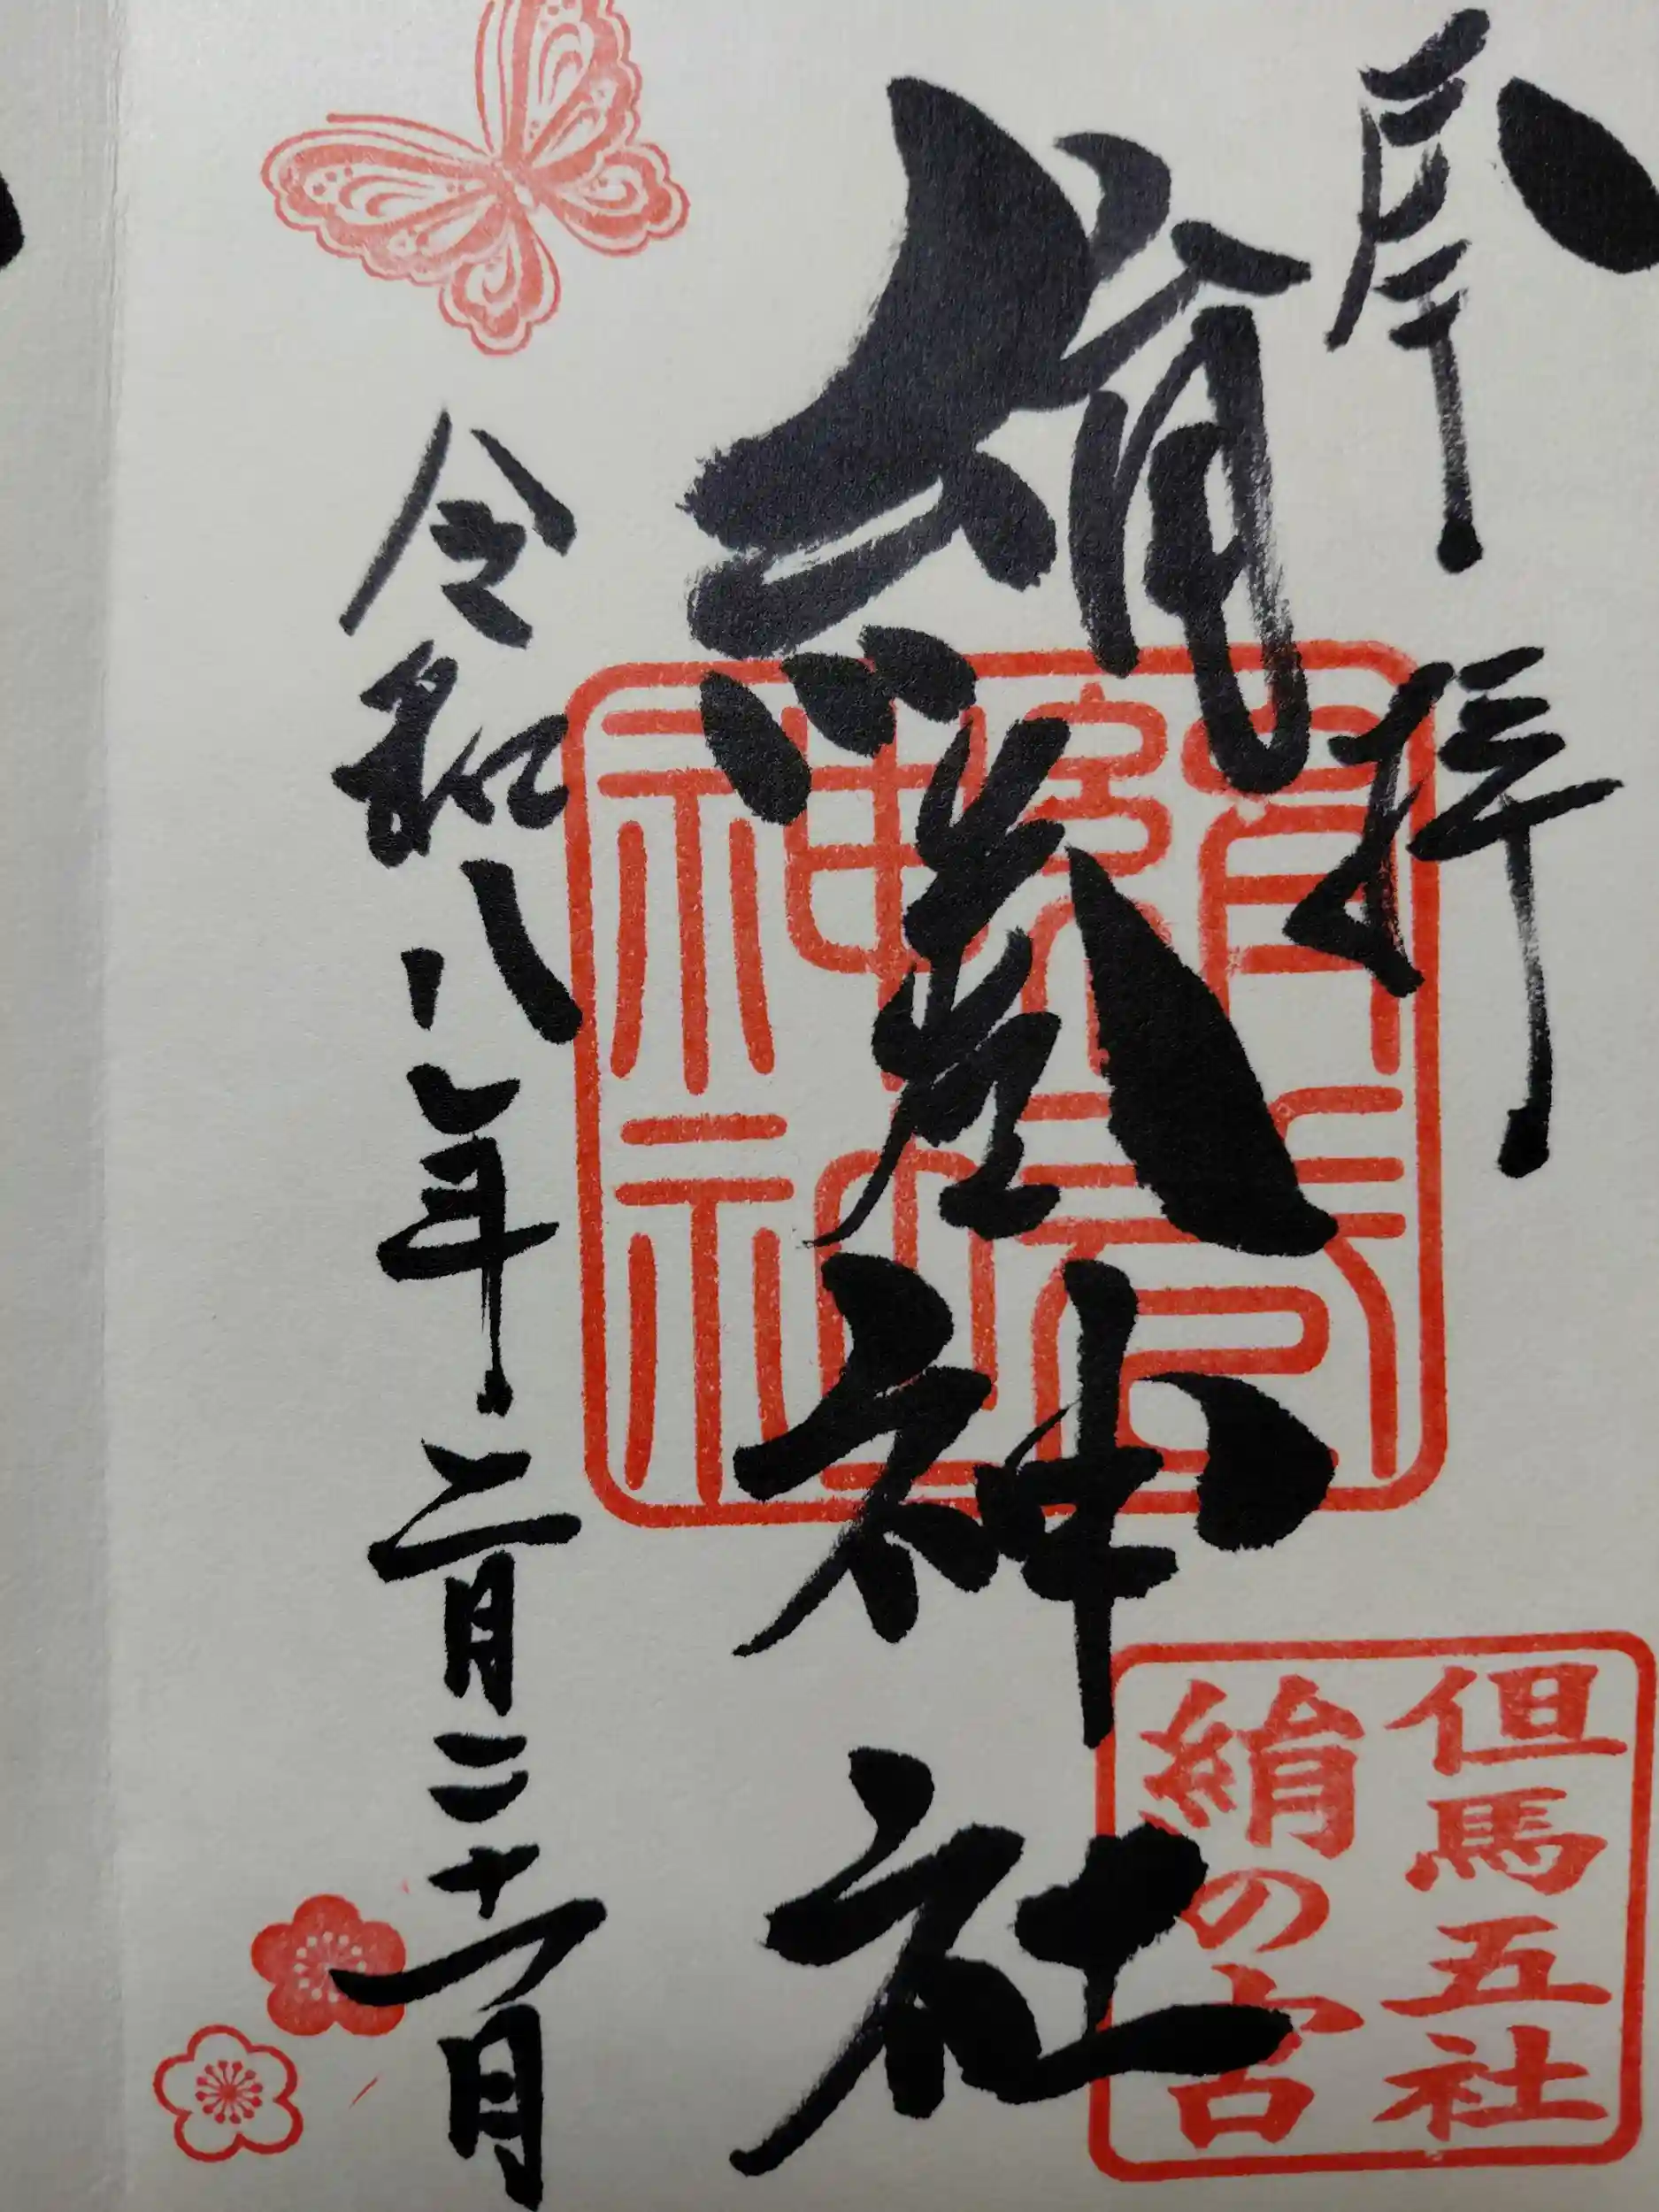 奉拝
絹巻神社
令和八年二月二十一日
絹巻神社
但馬五社
絹の宮